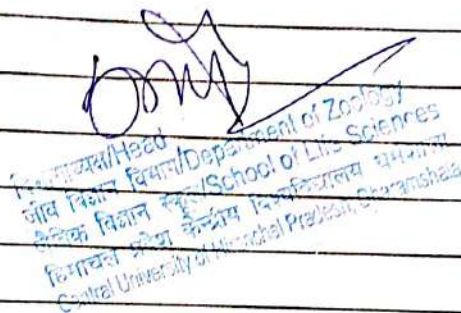 विभागाध्यक्ष/Head
जीव विज्ञान विभाग/Department of Zoology
जैविक विज्ञान स्कूल/School of Life Sciences
हिमाचल प्रदेश केन्द्रीय विश्वविद्यालय धर्मशाला
Central University of Himachal Pradesh, Dharamshala